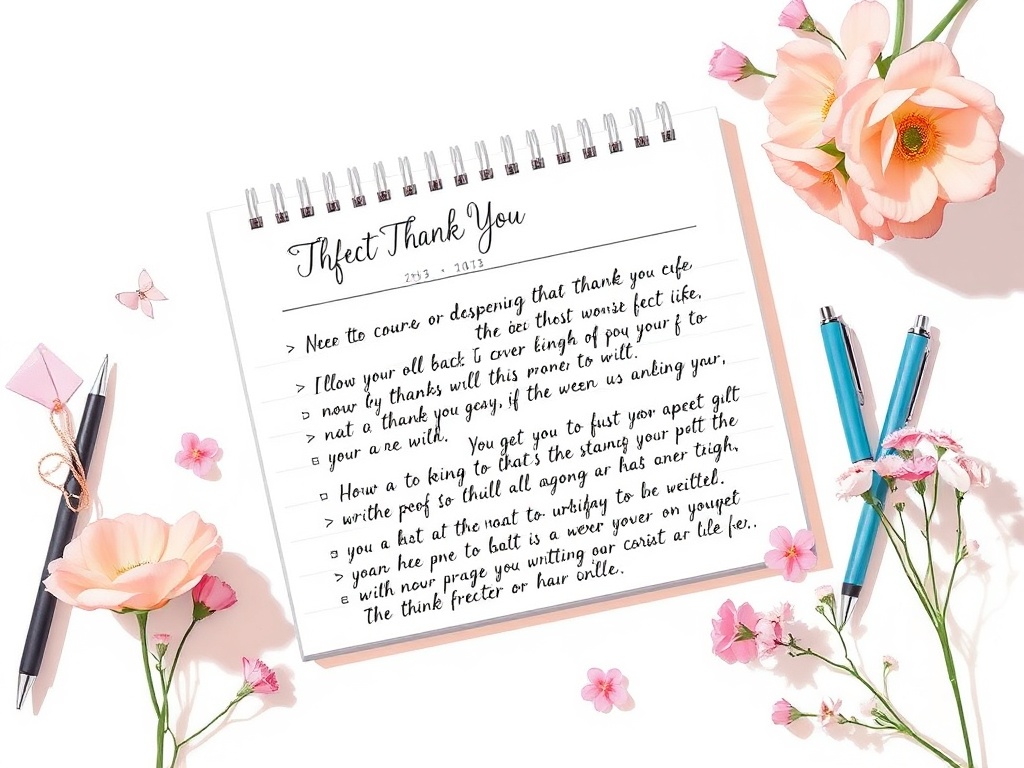 Thfect Thank You
> Nece tto coure or despening that thank you cife
the thost fect like,
> I llow your oll back cover kingh of pou your f to
now by thanks will this to wilt.
> nat a thank you goay, if the ween us anking your,
your a re with. You get you to fust your apeet gilt
How a to king to that's the staung your pott the
> writhe peof so thill all agong ar has aner tigh,
you a hist at the to be weittel.
> yoan hee pne to balt is a weer yover on youpet
with nour prage you writting our corist ar life fer..
The think frecter or hair onlle.